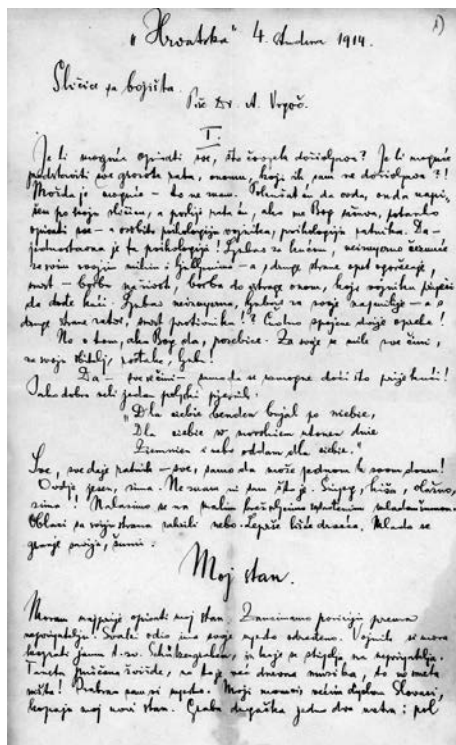 1)
„Hrvatska“ 4. studena 1914.
Sličice sa bojišta.
Piše Dr. A. Vrgoč.
I.
Je li moguće opisati sve, što čovjek doživljava? Je li moguće
predstaviti sve grozote rata, onomu, koji ih sam ne doživljava?!
Možda je moguće — to ne znam. Pokušat ću da ovda, onda napi-
šem po koju sličicu, a poslije rata ću, ako me Bog sačuva, potanko
opisati sve — a osobito psihologiju vojnika, psihologiju ratnika. Da —
jednostavna je ta psihologija! Ljubav za kućom, neizmjerno čeznuće
za svim svojim milim i ljubljenim — a s druge strane opet ogorčenje,
smrt — borba na život, borba do istrage onom, koji vojniku priječi
da dođe kući. Ljubav neizmjerna, ljubav za svoje najmilije — a s
druge strane zator, smrt protivniku!? Čudno spojene dvije opreke!
No o tom, ako Bog da, posebice. Za svoje se mile sve čini,
za svoju obitelj, rođake, ljube!
Da — sve se čini — samo da se uzmogne doći što prije kući!
Kako dobro veli jedan poljski pjesnik:
„Dla ciebie benden bujał po niebie,
Dla ciebie w morskiem utonen dnie
Ziemnien i nebo oddam dla ciebie.“
Sve, sve daje ratnik — sve, samo da može jednom k svom domu!
Ovdje jesen, zima. Ne znam ni sam što je. Snijeg, kiša, oblačno,
zima! Nalazimo se na malim brežuljcima mladom šumom.
Oblaci sa sviju strana zakrili nebo. Lepršće lišće drveća. Mlado se
granje svija, šumi.
Moj stan.
Moram najprije opisati moj stan. Zauzimamo poziciju prema
neprijatelju. Svaki odio ima svoje mjesto određeno. Vojnik si mora
kopati jamu t. zv. Schützengraben, iz koje se strijelja na neprijatelja.
Taneta zvižde, no to je već dnevna muzika, to ne smeta
ništa! Izabrao sam si mjesto. Moji momci većim dijelom Slovaci,
kopaju moj novi stan. Graba dugačka jedno dva metra i pol